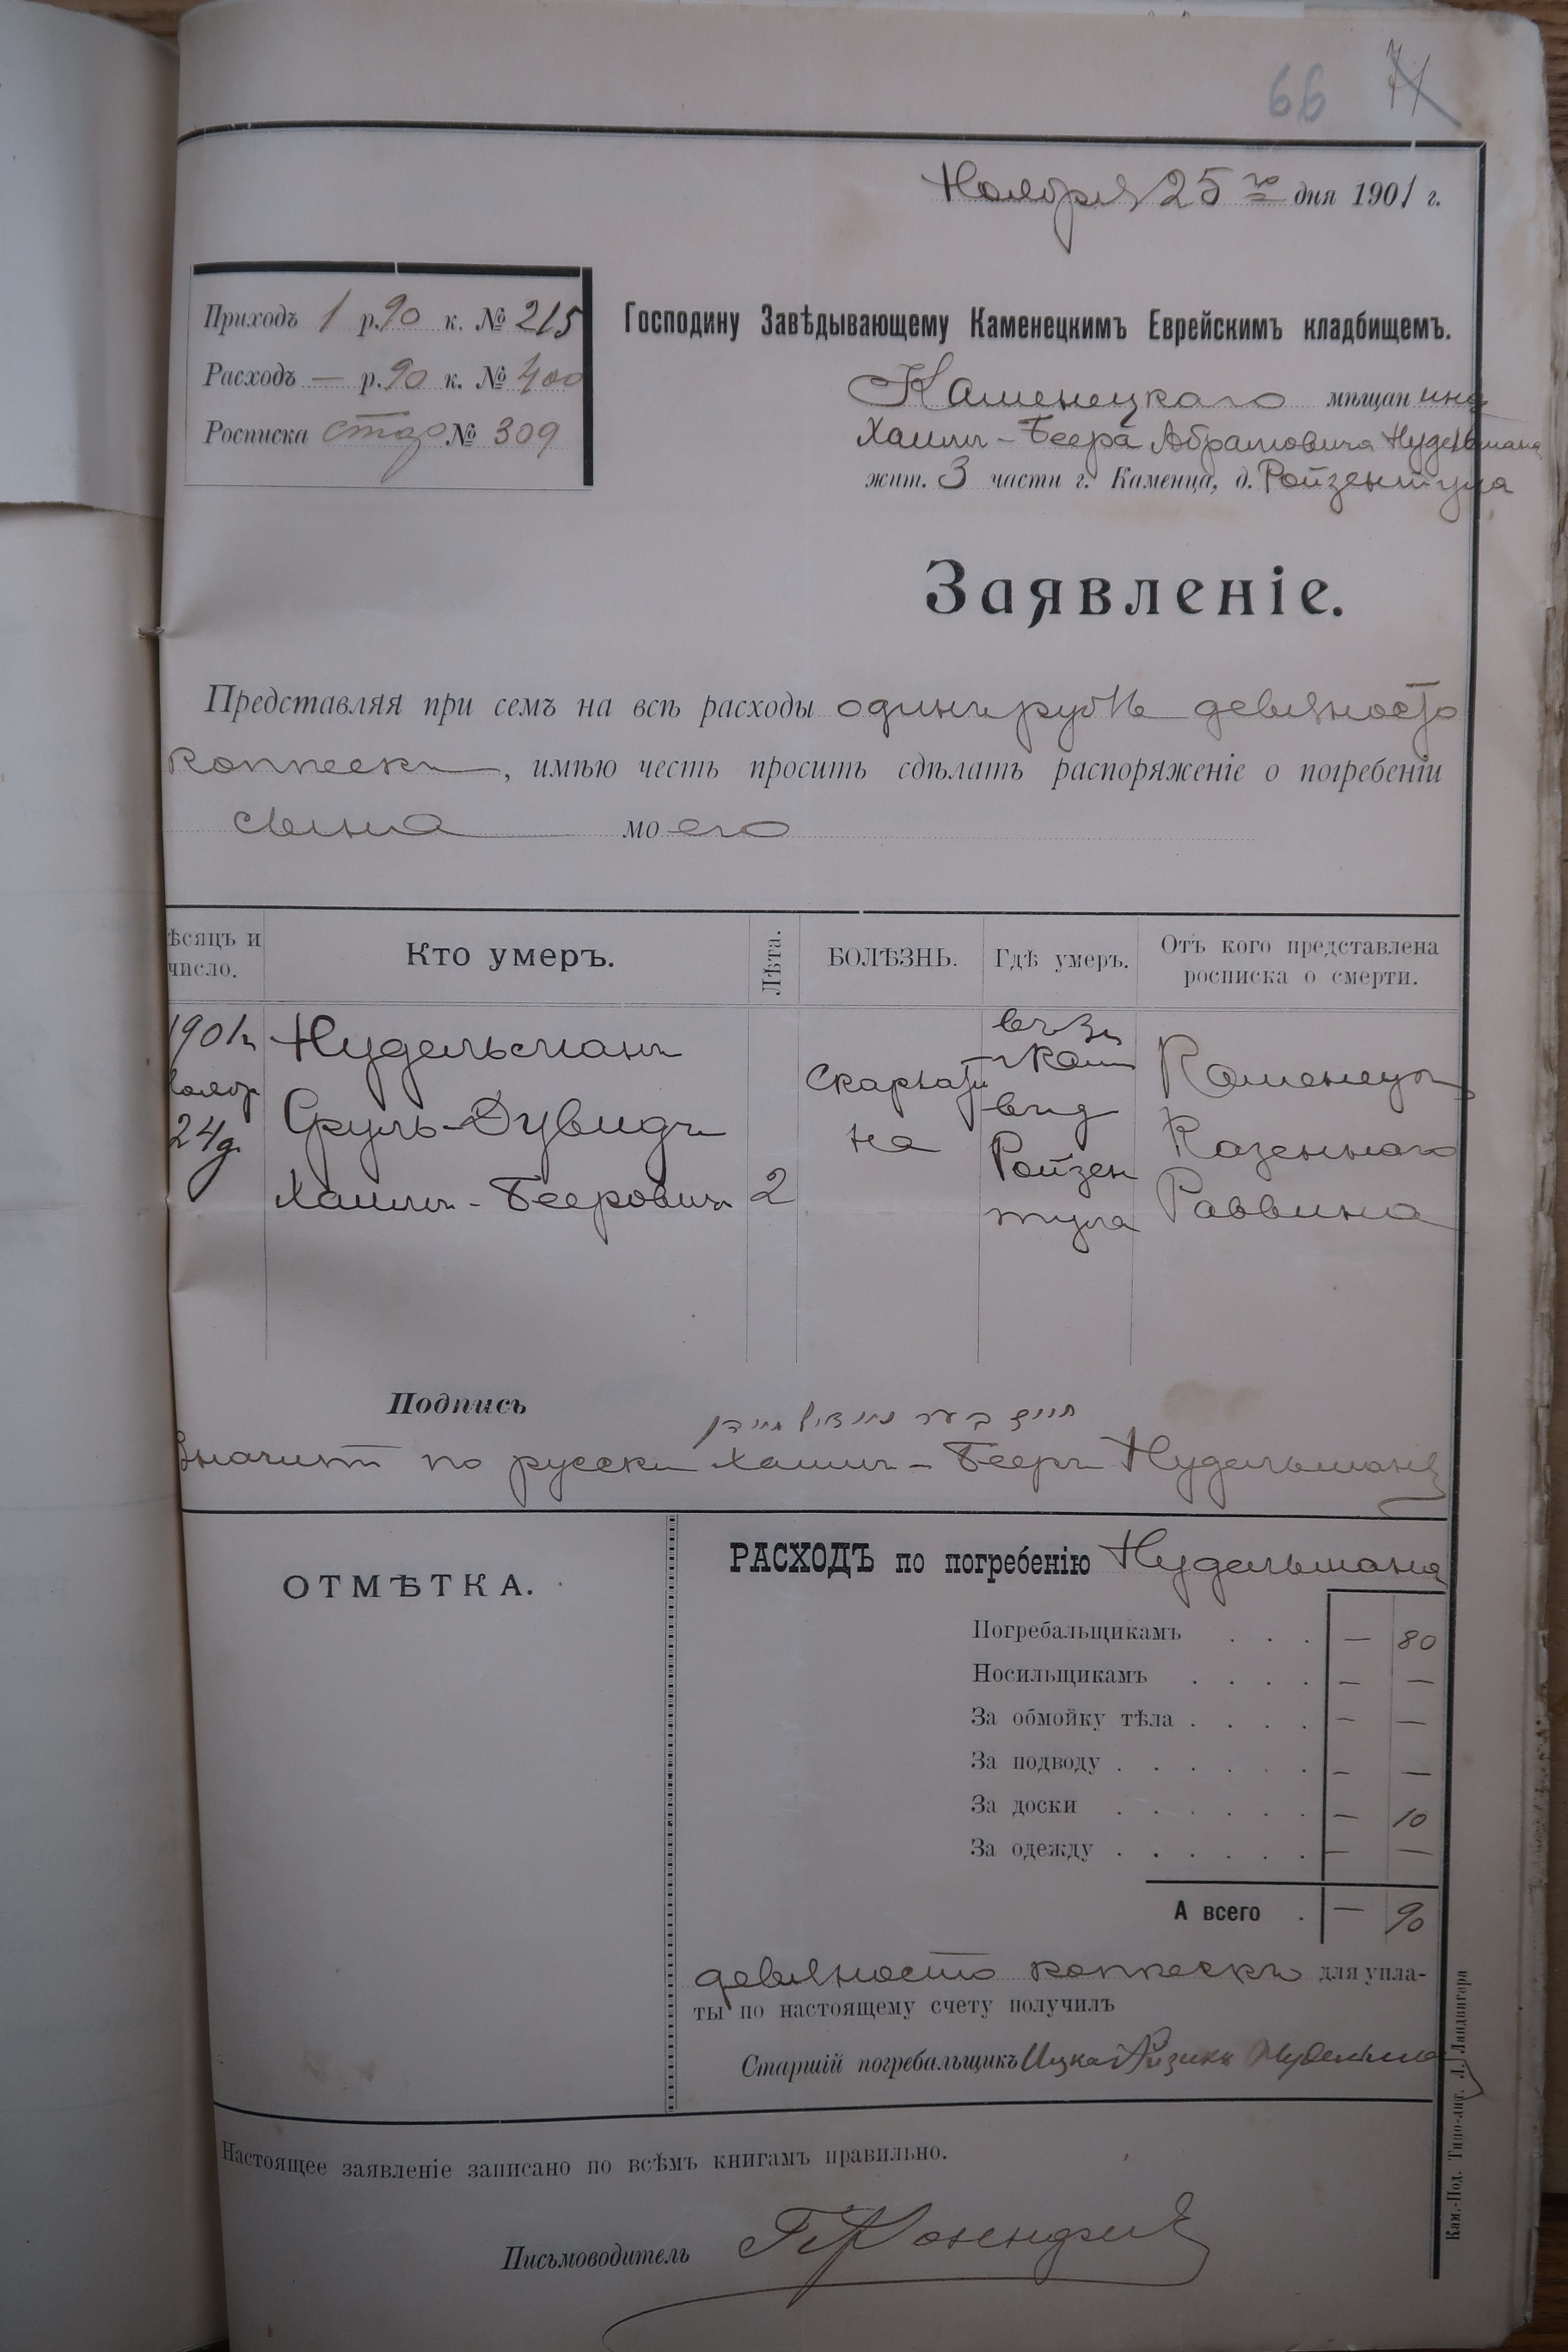 66 71
Ноября 25 го дня 1901 г.
Приходъ 1 р. 90 к. № 215
Расходъ — р. 90 к. № 400
Росписка № 309
Господину Завѣдывающему Каменецкимъ Еврейскимъ кладбищемъ.
Каменецкаго мѣщанина
Хаимъ-Беера Абрамовича Нудельмана
жит. 3 части г. Каменца, д. Ройзентула
Заявленіе.
Представляя при семъ на всѣ расходы одинъ рубль девяносто
копѣекъ, имѣю честь просить сдѣлать распоряженіе о погребеніи
сына моего
ѣсяцъ и число. Кто умеръ. Лѣта. БОЛѢЗНЬ. Гдѣ умеръ. Отъ кого представлена росписка о смерти.
1901г Нудельманъ въ 3ч
ноябр г Кам Каменецъ
24д Сруль-Дувидъ Скарлати въ д Казеннаго
на Ройзен
Хаимъ-Бееровичъ 2 тула Раввина
Подпись חיים בער נוידילמאן
Значит по русски Хаимъ-Бееръ Нудельманъ
ОТМѢТКА.
РАСХОДЪ по погребенію Нудельмана
Погребальщикамъ . . . — 80
Носильщикамъ . . . . — —
За обмойку тѣла . . . . — —
За подводу . . . . . . — —
За доски . . . . . . — 10
За одежду . . . . . . — —
А всего . — 90
девяносто копѣекъ для упла-
ты по настоящему счету получилъ
Старшій погребальщикъ Ицка Айзикъ Нудельман
Настоящее заявленіе записано по всѣмъ книгамъ правильно.
Письмоводитель
Кам.-Под. Типо-лит. Л. Ландвигера